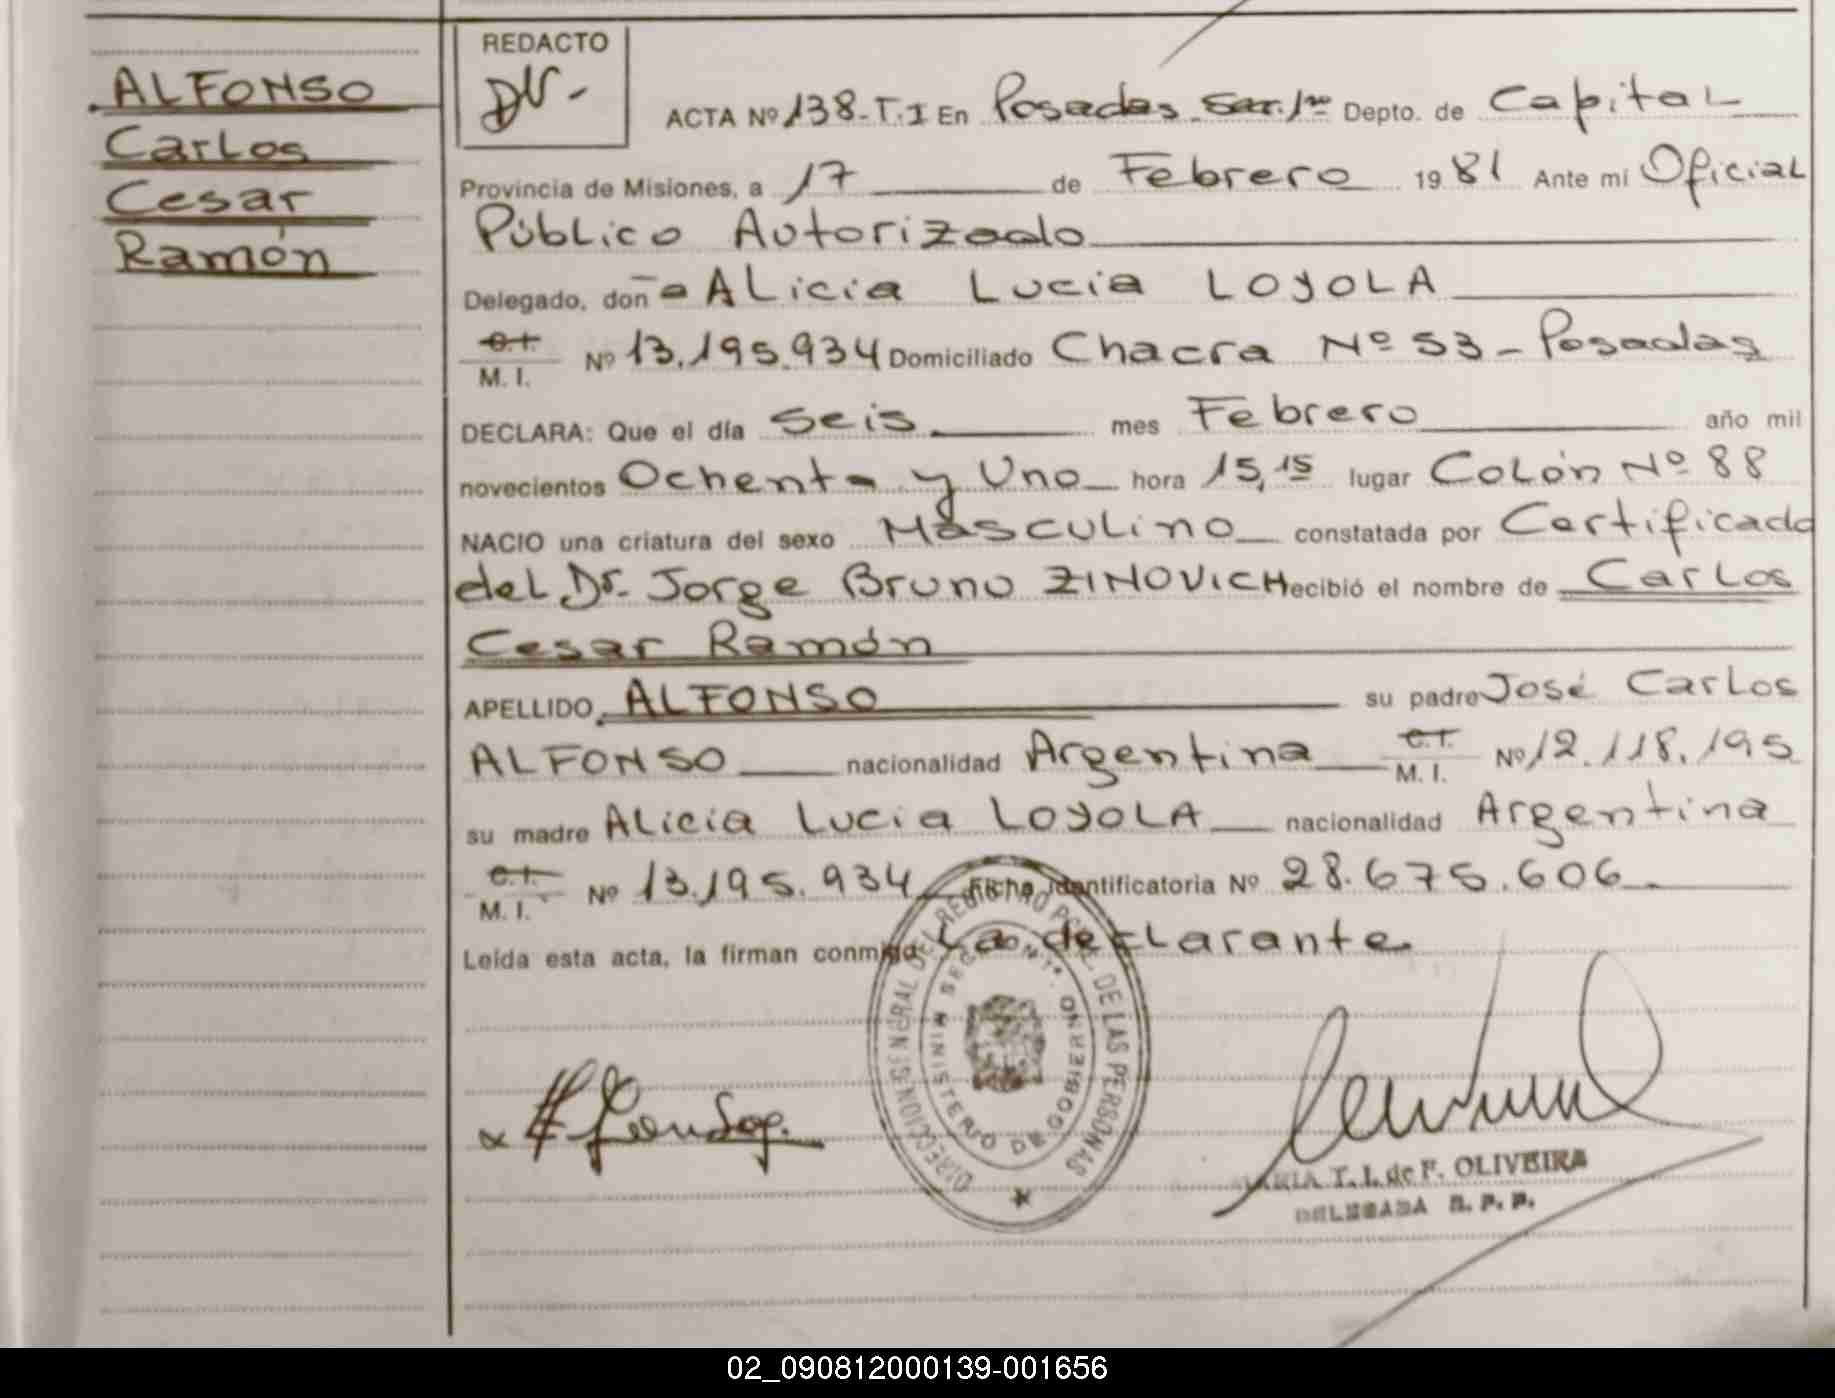 ALFONSO
Carlos
Cesar
Ramón
REDACTO
ACTA Nº 138-T.I En Posadas Sec. 1ra Depto. de Capital
Provincia de Misiones, a 17 de Febrero 1981 Ante mi Oficial
Público Autorizado
Delegado, don-a Alicia Lucia LOYOLA
C.I. M. I. Nº 13.195.934 Domiciliado Chacra Nº 53 - Posadas
DECLARA: Que el día Seis mes Febrero año mil
novecientos Ochenta y Uno hora 15,15 lugar Colón Nº 88
NACIO una criatura del sexo Masculino constatada por Certificado
del Dr. Jorge Bruno ZINOVICH ecibió el nombre de Carlos
Cesar Ramón
APELLIDO ALFONSO su padre José Carlos
ALFONSO nacionalidad Argentina C.I. M. I. Nº 12.118.195
su madre Alicia Lucia LOYOLA nacionalidad Argentina
C.I. M. I. Nº 13.195.934 ficha identificatoria Nº 28.675.606
Leída esta acta, la firman conmigo La declarante
DIRECCION GENERAL DEL REGISTRO PCIAL. DE LAS PERSONAS
MINISTERIO DE GOBIERNO
T. I. de F. OLIVEIRA
DELEGADA R. P. P.
02_090812000139-001656